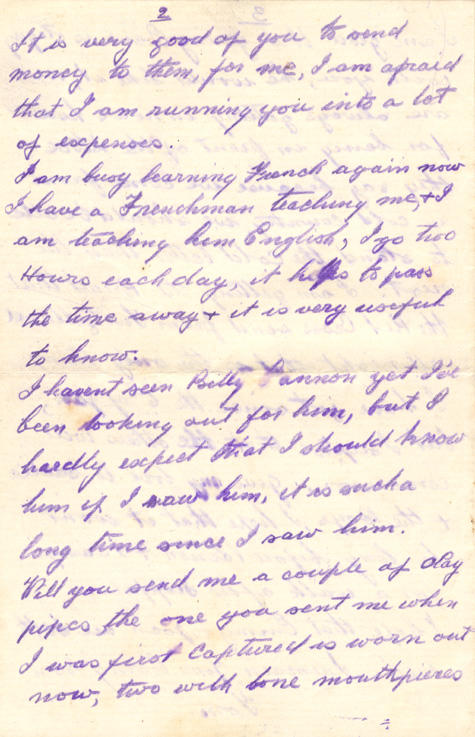 2
It is very good of you to send
money to them, for me, I am afraid
that I am running you into a lot
of expenses.
I am busy learning French again now
I have a Frenchman teaching me, + I
am teaching him English, I go two
Hours each day, it helps to pass
the time away + it is very useful
to know.
I havent seen Billy Cannon yet I've
been looking out for him, but I
hardly expect that I should know
him if I saw him, it is such a
long time since I saw him.
Will you send me a couple of clay
pipes, the one you sent me when
I was first captured is worn out
now, two with bone mouthpieces